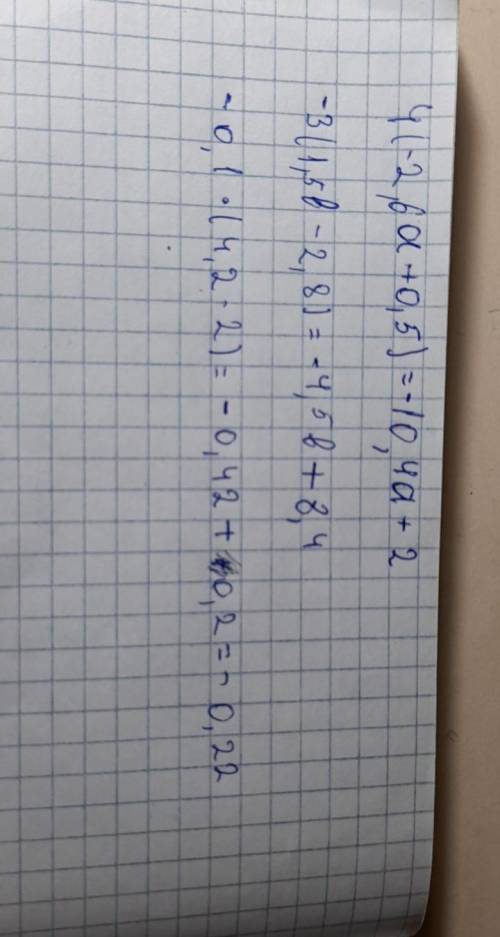 4(-2,6a+0,5)=-10,4a+2
-3(1,5b-2,8)=-4,5b+8,4
-0,1·(4,2-2)=-0,42+0,2=-0,22